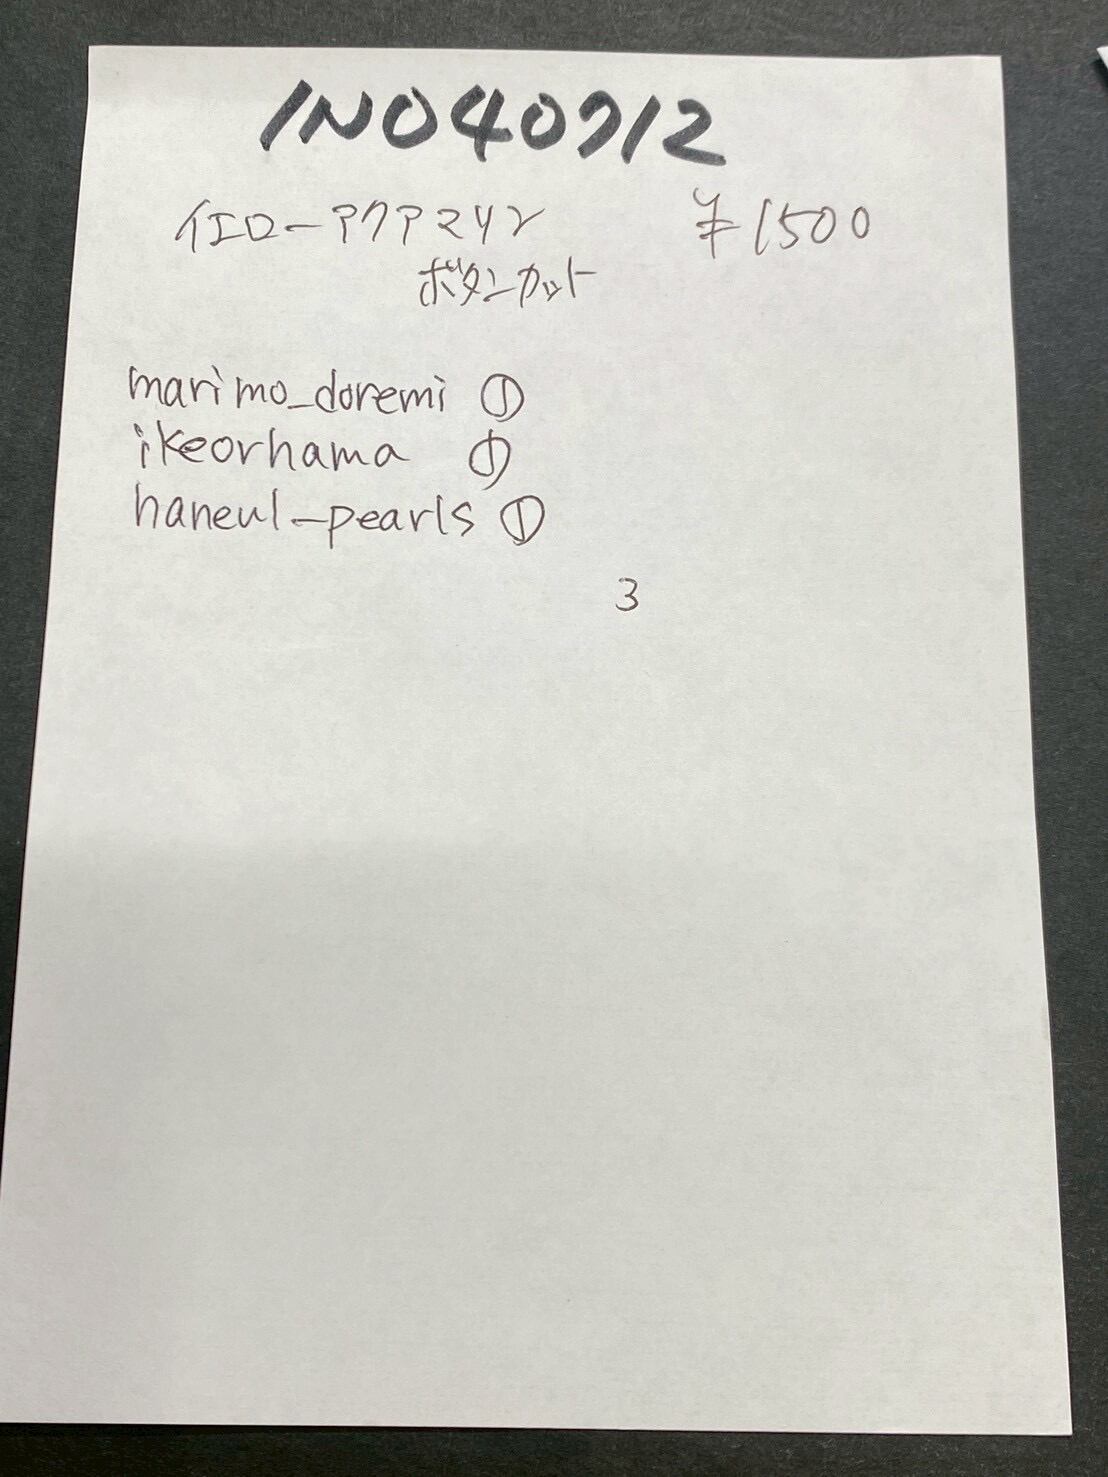 INO40712
イエローアクアマリン ¥1500
ボタンカット
marimo_doremi ①
ikeorhama ①
haneul_pearls ①
3